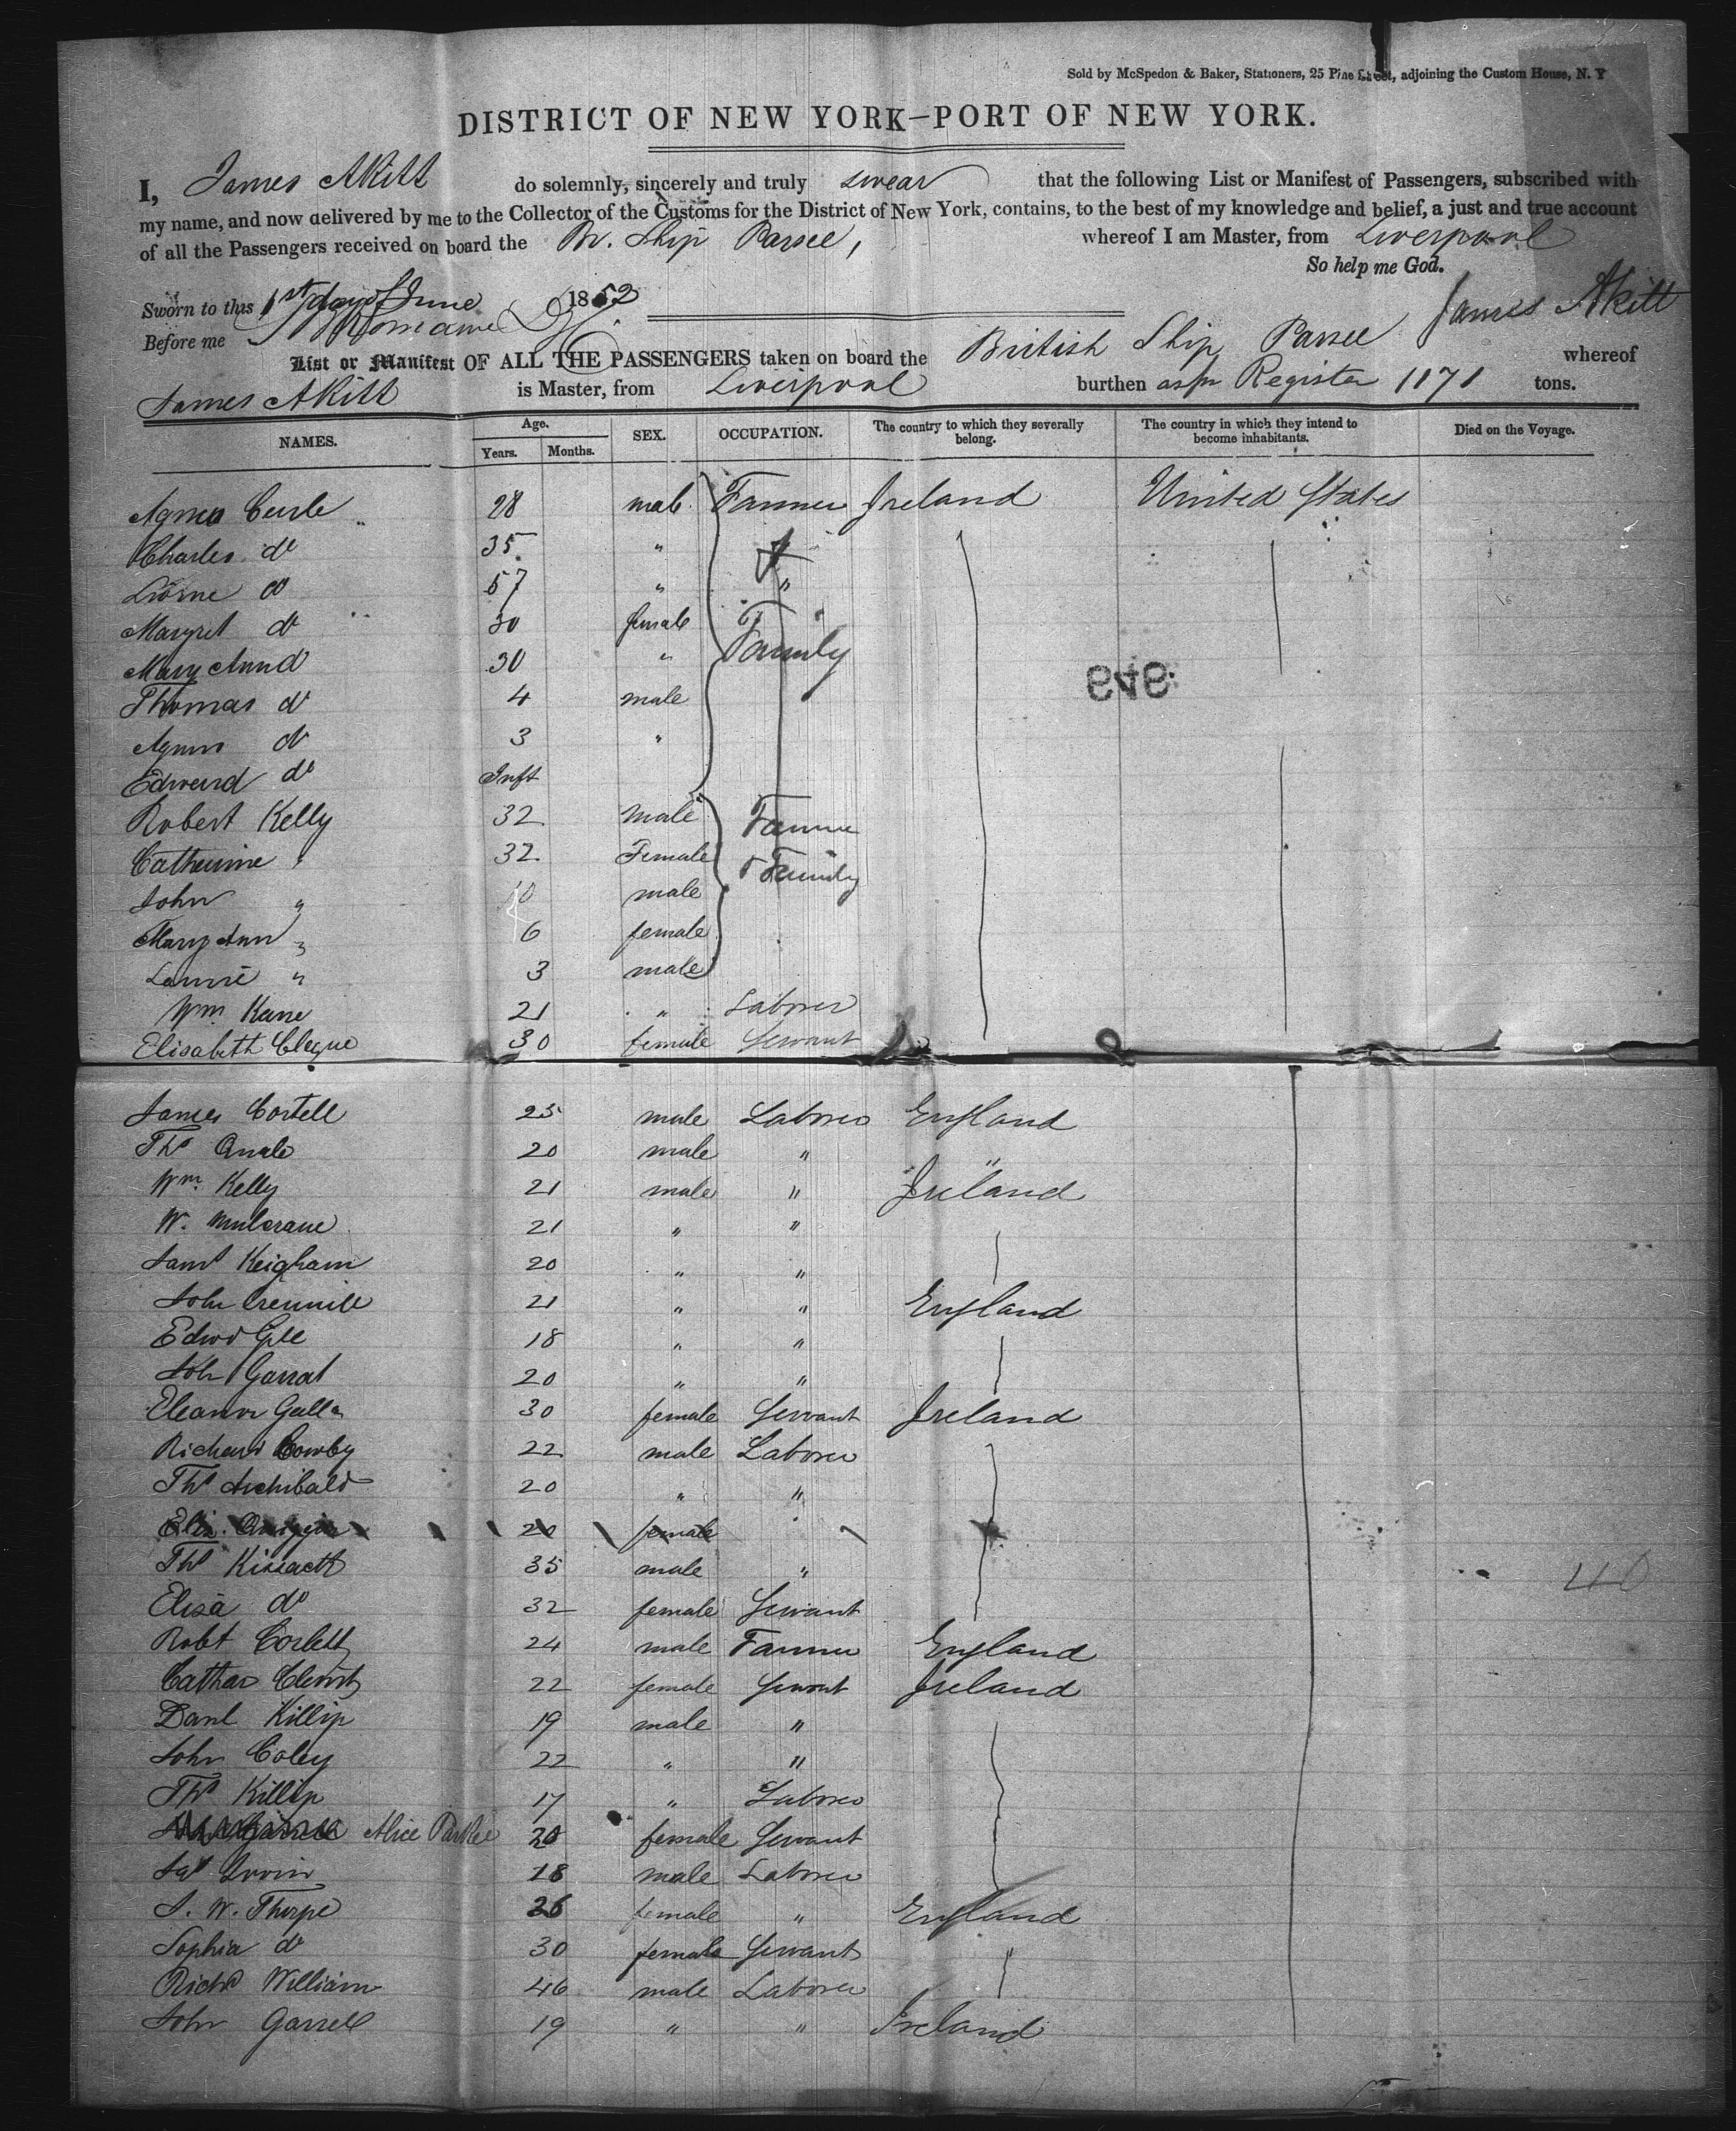 Sold by McSpedon & Baker, Stationers, 25 Pine Street, adjoining the Custom House, N. Y
DISTRICT OF NEW YORK—PORT OF NEW YORK.
I, James AKitt do solemnly, sincerely and truly swear that the following List or Manifest of Passengers, subscribed with
my name, and now delivered by me to the Collector of the Customs for the District of New York, contains, to the best of my knowledge and belief, a just and true account
of all the Passengers received on board the Br. Ship Parsee, whereof I am Master, from Liverpool
So help me God.
Sworn to this 1st day of June 1852 James AKitt
Before me
List or Manifest OF ALL THE PASSENGERS taken on board the British Ship Parsee whereof
James AKitt is Master, from Liverpool burthen as pr Register 1171 tons.
NAMES. Age. Years. Months. SEX. OCCUPATION. The country to which they severally belong. The country in which they intend to become inhabitants. Died on the Voyage.
28 male Farmer Ireland United States
Charles do 35 "
do 57 " "
Margret do 30 female Family
Mary Ann d 30 "
Thomas do 4 male
do 3 "
Edward do Inft
Robert Kelly 32 male Farmer
Catherine " 32 Female & Family
John " 10 male
Mary Ann " 6 female
" 3 male
Wm Kane 21 " Laborer
Elisabeth Clague 30 female Servant
James Cortell 25 male Laborer England
Ths Quale 20 male " "
Wm Kelly 21 male " Ireland
W. Mulcrane 21 " "
Saml Keigham 20 " "
John 21 " " England
Edwd Gill 18 " "
John Garrat 20 " "
Eleanor 30 female Servant Ireland
Richard Cowby 22 male Laborer
Ths Archibald 20 " "
Eliz. 20 female
Ths 35 male "
Elisa do 32 female Servant
Robt Corlett 24 male Farmer England
22 female Servant Ireland
Danl Killip 19 male "
John Coley 22 " "
Ths Killip 17 " Laborer
Alice 20 female Servant
Irvin 18 male Laborer
J. W. Thorpe 26 female " England
Sophia do 30 female Servant "
Richd William 46 male Laborer
John Garrell 19 " " Ireland
40